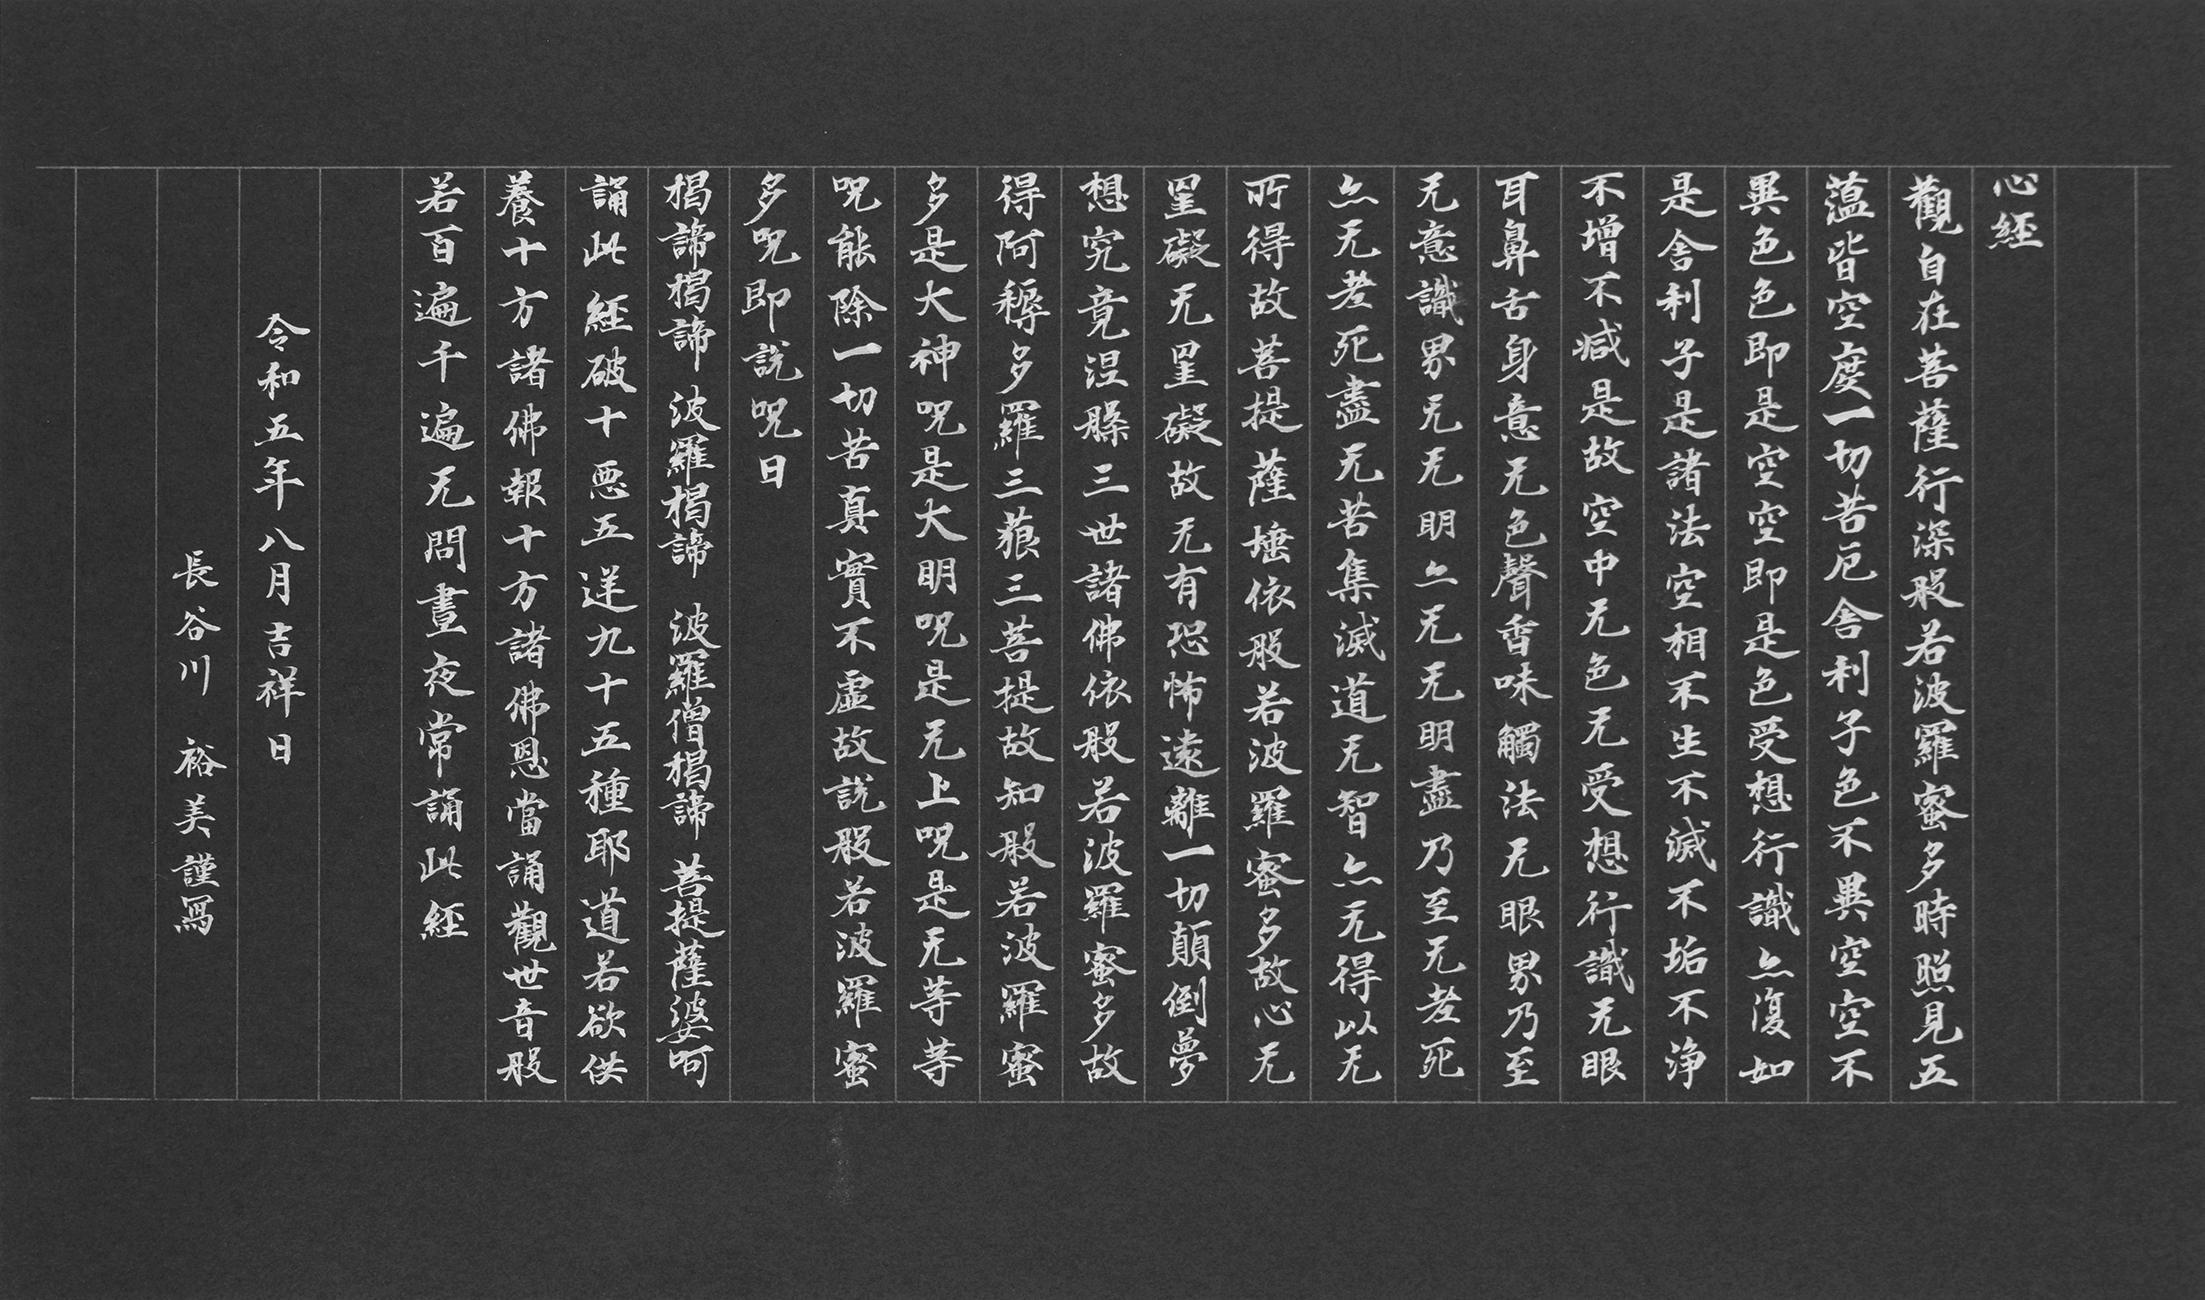 心経
觀自在菩薩行深般若波羅蜜多時照見五
薀皆空度一切苦厄舎利子色不異空空不
異色色即是空空即是色受想行識亦復如
是舎利子是諸法空相不生不滅不垢不浄
不増不減是故空中无色无受想行識无眼
耳鼻舌身意无色聲香味觸法无眼界乃至
无意識界无无明亦无无明盡乃至无老死
亦无老死盡无苦集滅道无智亦无得以无
所得故菩提薩埵依般若波羅蜜多故心无
罣礙无罣礙故无有恐怖遠離一切顛倒夢
想究竟涅槃三世諸佛依般若波羅蜜多故
得阿耨多羅三藐三菩提故知般若波羅蜜
多是大神呪是大明呪是无上呪是无等等
呪能除一切苦真實不虚故説般若波羅蜜
多呪即説呪曰
揭諦揭諦 波羅揭諦 波羅僧揭諦 菩提薩婆呵
誦此經破十悪五逆九十五種耶道若欲供
養十方諸佛報十方諸佛恩當誦觀世音般
若百遍千遍无問晝夜常誦此經
令和五年八月吉祥日
長谷川 裕美謹写